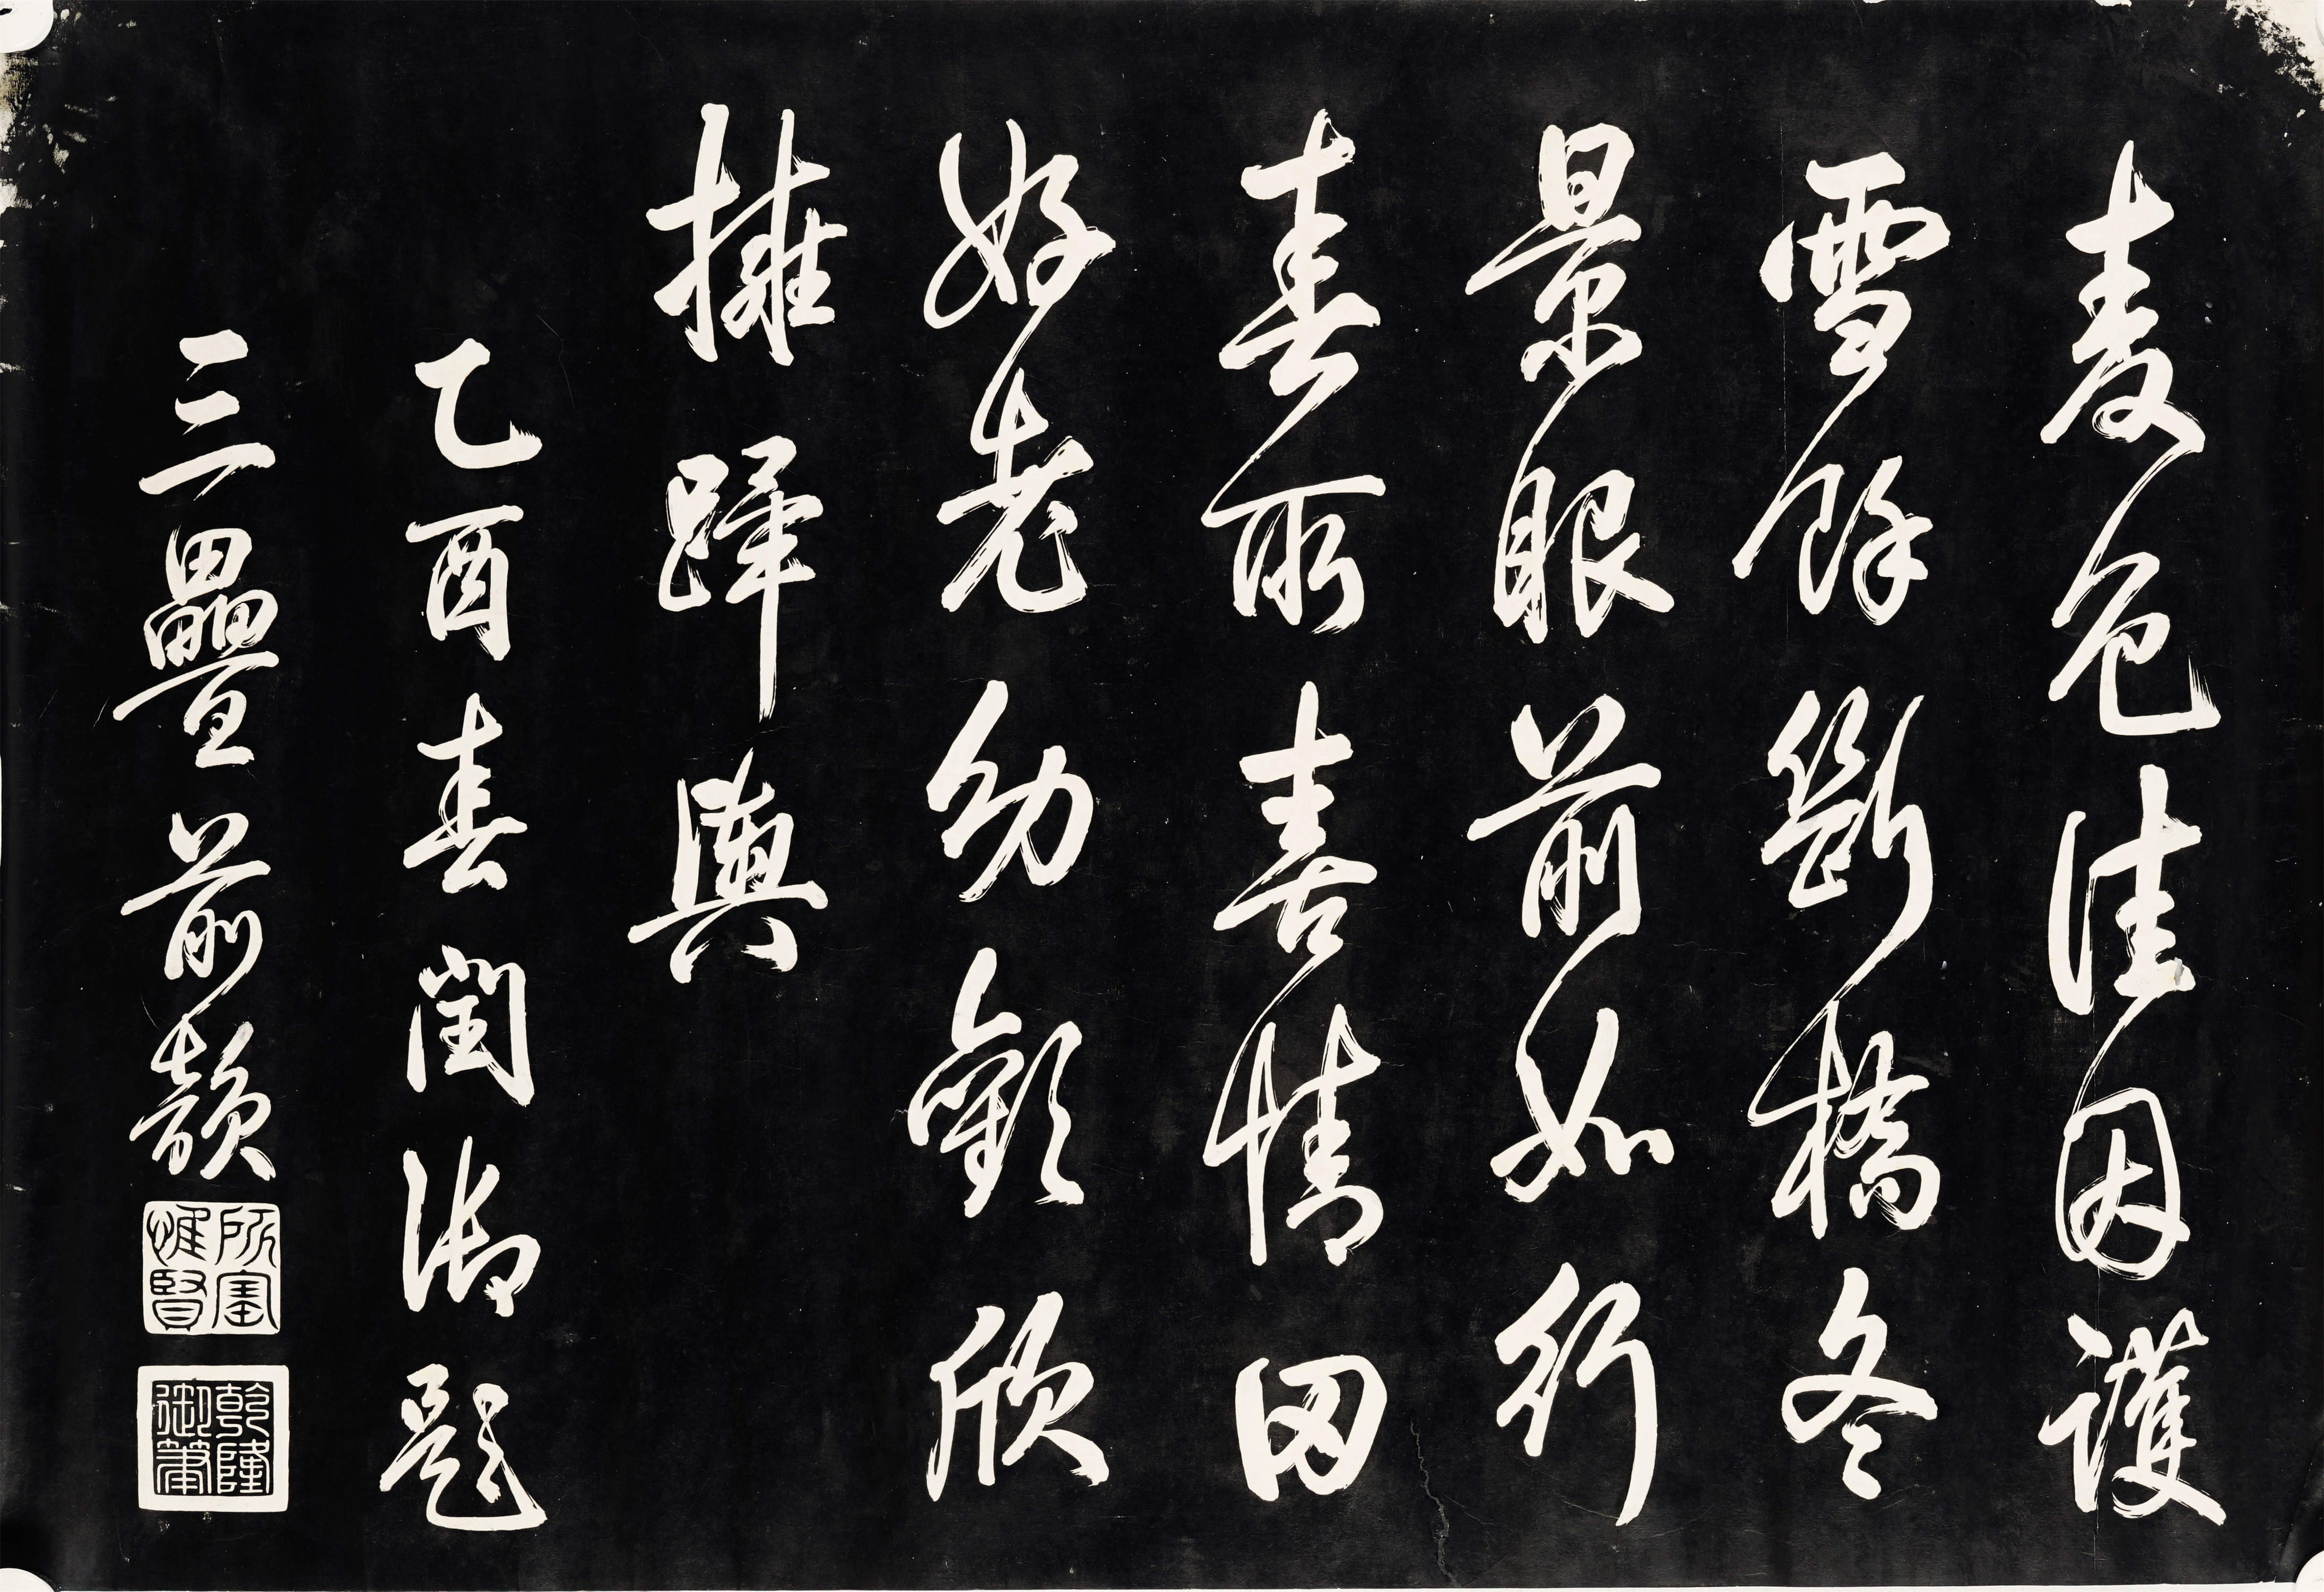 麦色佳因護
雪餘斷橋冬
景眼前如行
春所喜情田
好老幼歡欣
擁蹕輿
乙酉春閏御題
三疊前韻
所寶惟賢
乾隆御筆